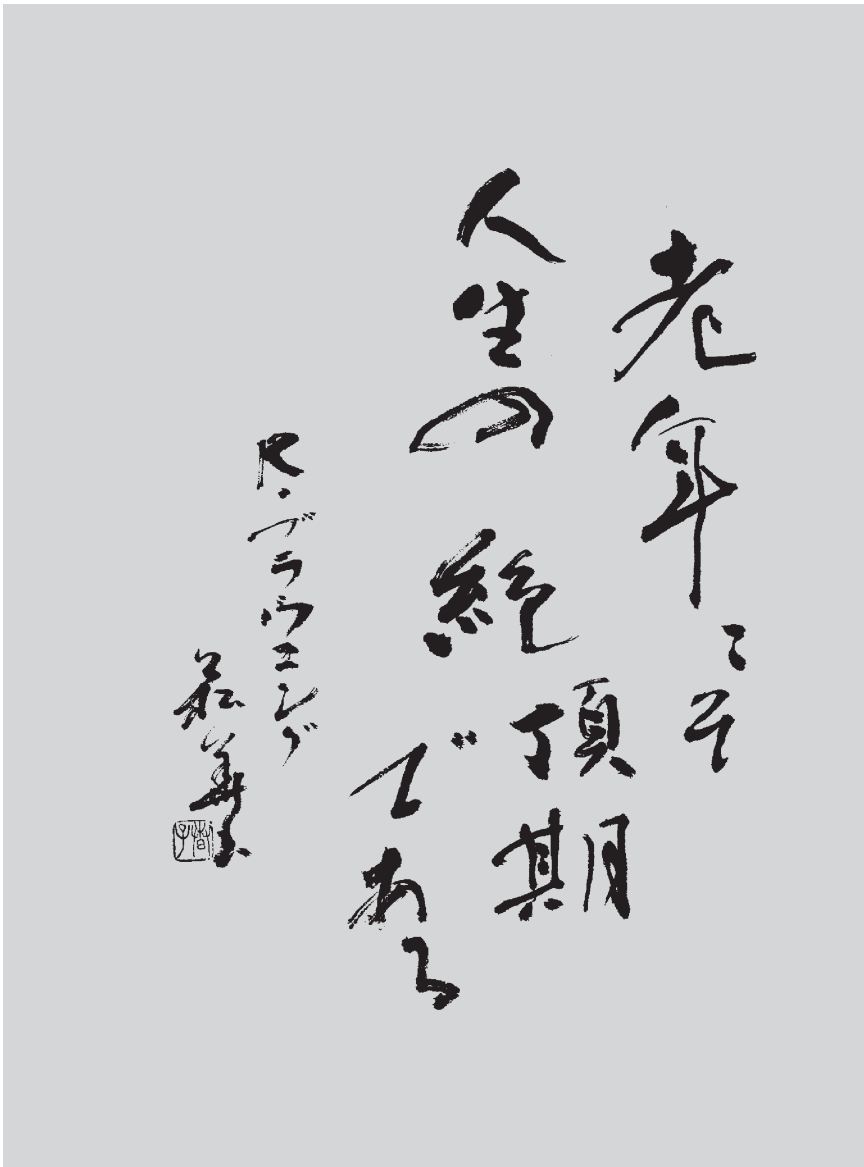 老年こそ
人生の絶頂期
である
R・ブラウニング